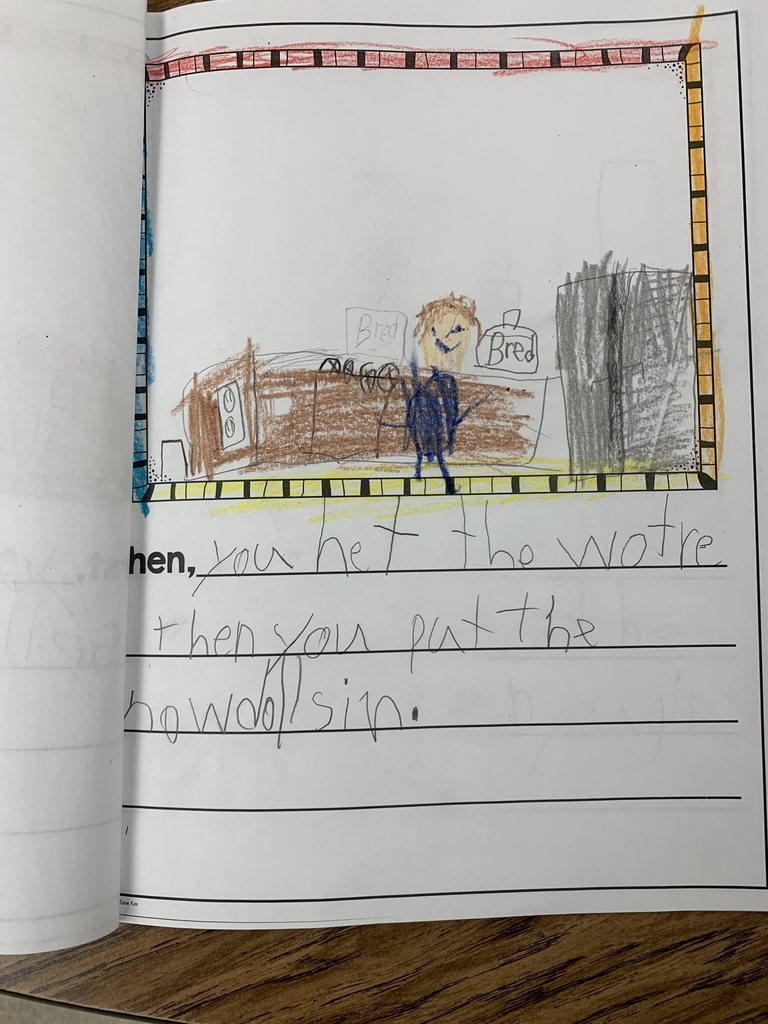 Bred
Bred
hen, you het the wotre
then you put the
nowdolls in.